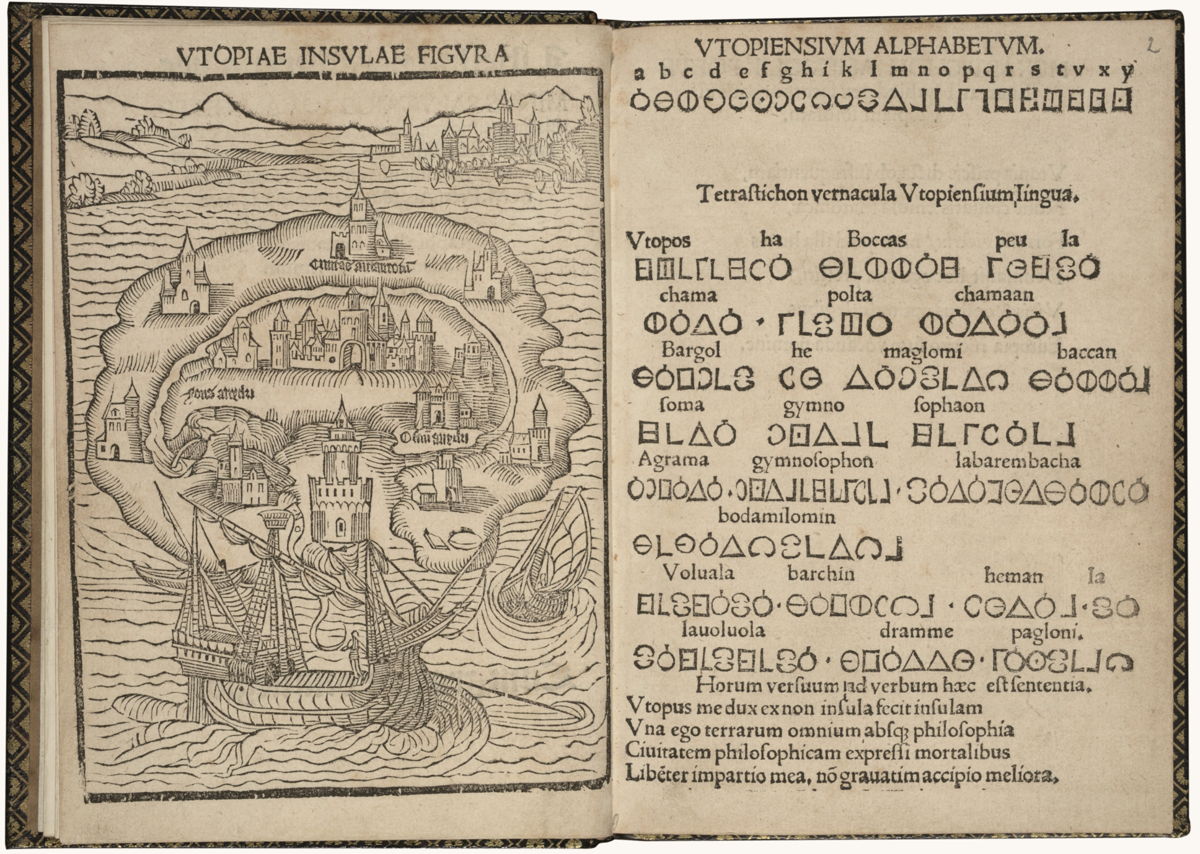 VTOPIAE INSVLAE FIGVRA
Ciuitas amaurotu
fons anydri
Ostiu anydri
VTOPIENSIVM ALPHABETVM.
2
a b c d e f g h i k l m n o p q r s t v x y
Tetrastichon vernacula Vtopiensium lingua.
Vtopos ha Boccas peu la
chama polta chamaan
Bargol he maglomi baccan
soma gymno sophaon
Agrama gymnosophon labarembacha
bodamilomin
Voluala barchin heman la
lauoluola dramme pagloni.
Horum versuum ad verbum hæc est sententia.
Vtopus me dux ex non insula fecit insulam
Vna ego terrarum omnium absqꝫ philosophia
Ciuitatem philosophicam expressi mortalibus
Libēter impartio mea, nō grauatim accipio meliora.